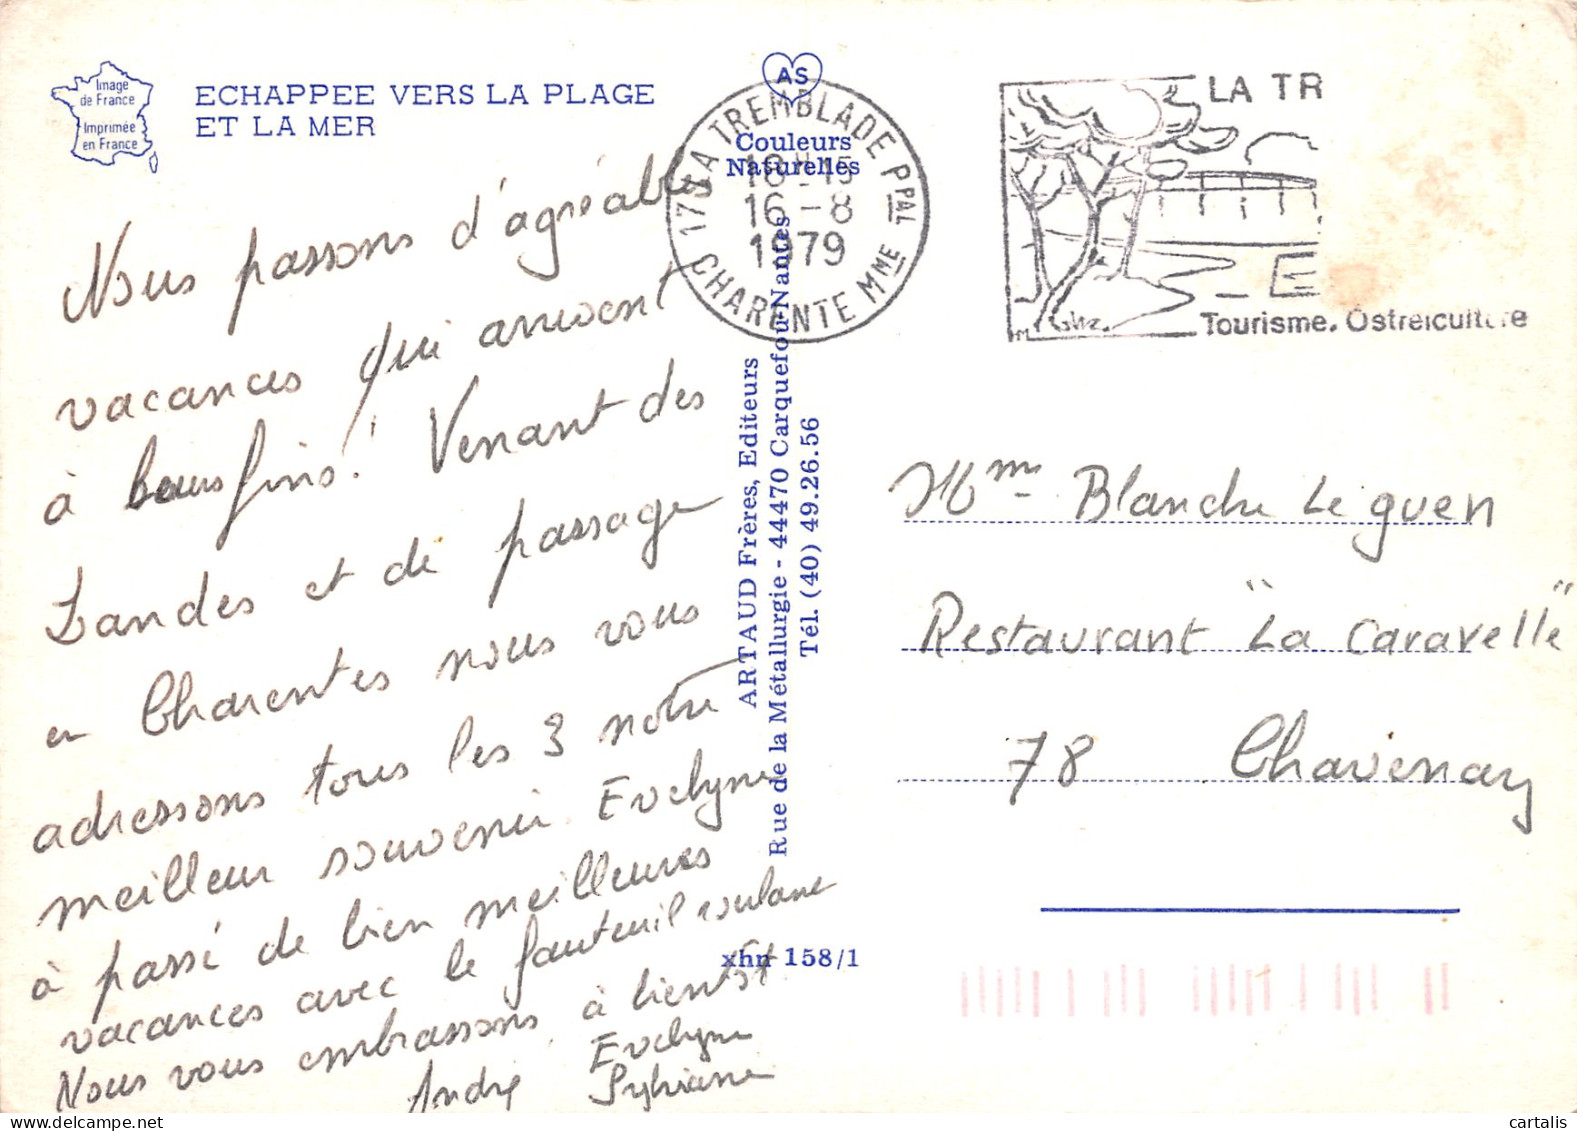 Image
de France
Imprimée
en France
ECHAPPEE VERS LA PLAGE
ET LA MER
AS
Couleurs
Naturelles
17 LA TREMBLADE PPAL
18H15
16-8
1979
CHARENTE MME
LA TR
Tourisme. Ostreiculture
Nous passons d'agréables
vacances qui arrivent
à leurs fins! Venant des
Landes et de passage
en Charentes nous vous
adressons tous les 3 notre
meilleur souvenir. Evelyne
à passé de bien meilleures
vacances avec le fauteuil roulant
Nous vous embrassons, à bientôt
Evelyne
André Sylviane
ARTAUD Frères, Editeurs
Rue de la Métallurgie - 44470 Carquefou-Nantes
Tél. (40) 49.26.56
xhn 158/1
Mme Blanche Le guen
Restaurant "La Caravelle"
78 Chavenay
cartalis